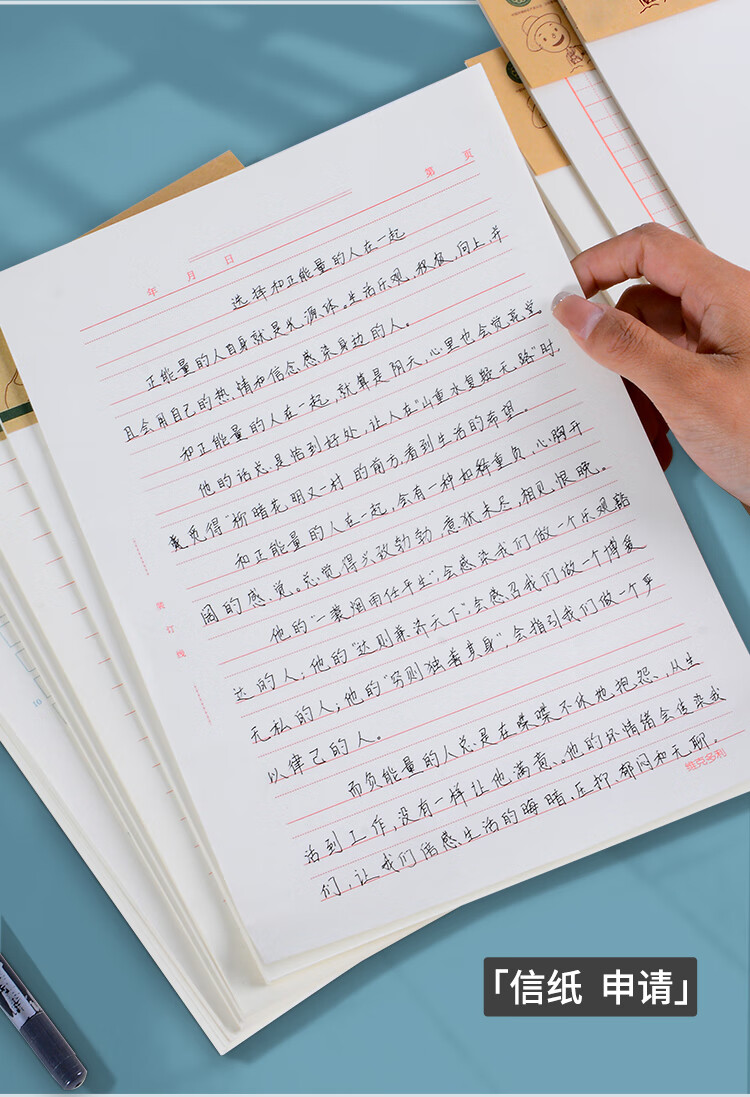 第 页
年 月 日
选择和正能量的人在一起
正能量的人自身就是光源体。生活乐观,积极,向上,并
且会用自己的热情和信念感染身边的人。
和正能量的人在一起,就算是阴天,心里也会觉亮堂。
他的话总是恰到好处,让人在"山重水复疑无路"时,
觅得"柳暗花明又一村"的前方,看到生活的希望。
和正能量的人在一起,会有一种如释重负,心胸开
阔的感觉。总觉得兴致勃勃,意犹未尽,相见恨晚。
他的"一蓑烟雨任平生",会感染我们做一个乐观豁
达的人;他的"达则兼济天下",会感召我们做一个博爱
无私的人;他的"穷则独善其身",会指引我们做一个严
以律己的人。
而负能量的人总是在喋喋不休地抱怨、从生
活到工作,没有一样让他满意。他的坏情绪会传染我
们,让我们倍感生活的晦暗、压抑、郁闷和无聊。
装订线
维克多利
10
「信纸 申请」